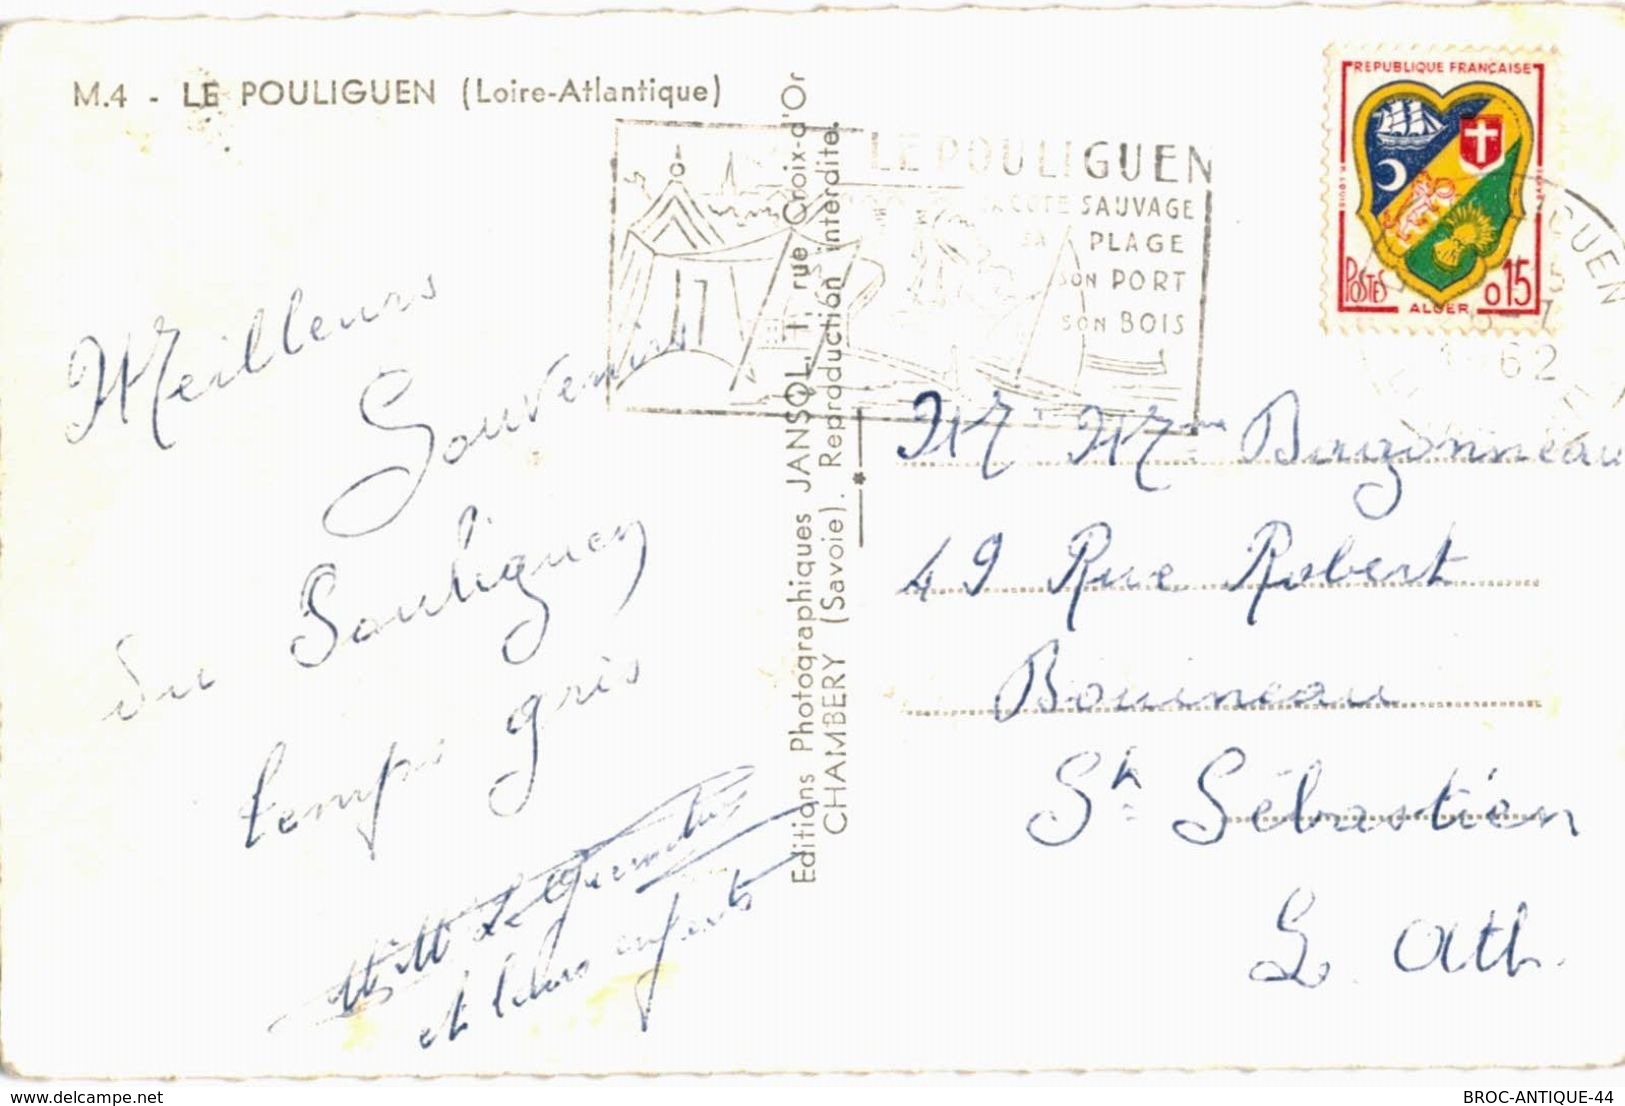 M.4 - LE POULIGUEN (Loire-Atlantique)
LE POULIGUEN
SA COTE SAUVAGE
SA PLAGE
SON PORT
SON BOIS
REPUBLIQUE FRANÇAISE
POSTES
ALGER
0 15
1962
Meilleurs
Souvenirs
du Pouliguen
temps gris
et leurs enfants
Editions Photographiques JANSOL, 1, rue Croix-d'Or
CHAMBERY (Savoie). Reproduction interdite.
Mr Mme Buzonneau
49 Rue Robert
Bouineau
St Sébastien
L. Atl.
delcampe.net
BROC-ANTIQUE-44